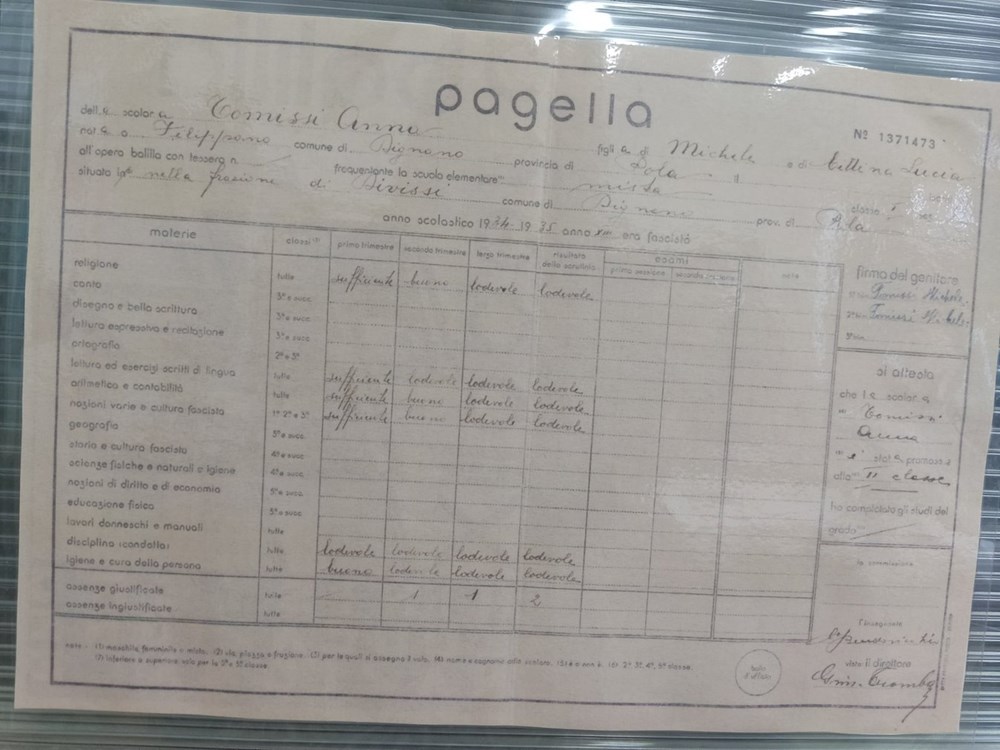 pagella
Nº 1371473
dell.e scolar a Tomissi Anna figli a di Michele e di Lucia
nat a a Filippano comune di Dignano provincia di Pola
all'opera balilla con tessera n. frequentante la scuola elementare mista classe I
situata in nella frazione di Divissi comune di Dignano prov. di Pola
anno scolastico 1934-1935 anno XIII era fascista
materie classi primo trimestre secondo trimestre terzo trimestre risultato dello scrutinio esami prima sessione seconda sessione note
religione tutte sufficiente buono lodevole lodevole
canto 3ª e succ.
disegno e bella scrittura 3ª e succ.
lettura espressiva e recitazione 3ª e succ.
ortografia 2ª e 3ª
lettura ed esercizi scritti di lingua tutte sufficiente lodevole lodevole lodevole
aritmetica e contabilità tutte sufficiente buono lodevole lodevole
nozioni varie e cultura fascista 1ª 2ª e 3ª sufficiente buono lodevole lodevole
geografia 3ª e succ.
storia e cultura fascista 4ª e succ.
scienze fisiche e naturali e igiene 4ª e succ.
nozioni di diritto e di economia 5ª e succ.
educazione fisica
lavori donneschi e manuali tutte
disciplina (condotta) tutte lodevole lodevole lodevole lodevole
igiene e cura della persona tutte buono lodevole lodevole lodevole
assenze giustificate tutte 1 1 2
assenze ingiustificate tutte
firma del genitore
Tomissi Michele
Tomissi Michele
si attesta
che l.e scolar a
Tomissi
Anna
è stat a promoss a
alla II classe
ha completato gli studi del
grado
la commissione
l'insegnante
visto il direttore
note - (1) maschile, femminile o mista. (2) via, piazza o frazione. (3) per le quali si assegna il voto. (4) nome e cognome dello scolaro. (5) è o non è. (6) 2ª, 3ª, 4ª, 5ª classe.
(7) inferiore o superiore solo per la 3ª e 5ª classe.
bollo d'ufficio